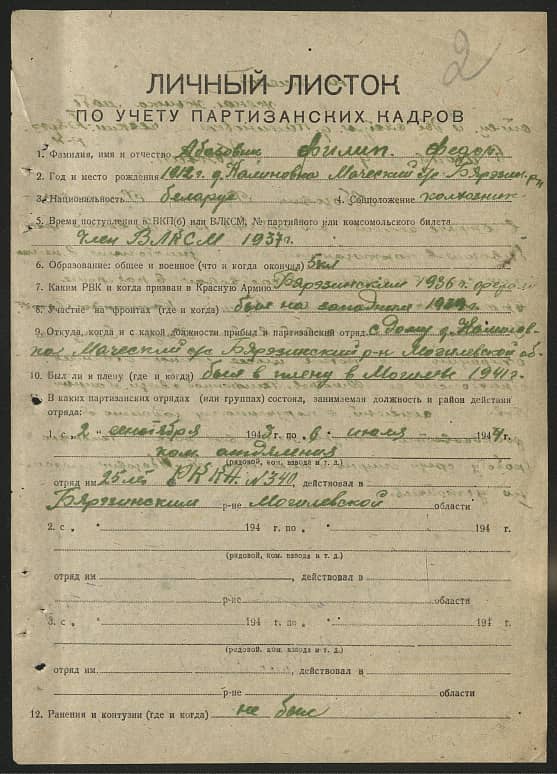 2
ЛИЧНЫЙ ЛИСТОК
ПО УЧЕТУ ПАРТИЗАНСКИХ КАДРОВ
1. Фамилия, имя и отчество Абазовик Филип. Федот.
2. Год и место рождения 1912 г. д. Калиновка Маческий с/с Бярэзин. р-н
3. Национальность беларус 4. Соцположение колхозник
5. Время поступления в ВКП(б) или ВЛКСМ, № партийного или комсомольского билета
Член ВЛКСМ 1937 г.
6. Образование: общее и военное (что и когда окончил) 5 кл
7. Каким РВК и когда призван в Красную Армию Бярэзинским 1936 г.
8. Участие на фронтах (где и когда) был на западным 1939 г.
9. Откуда, когда и с какой должности прибыл в партизанский отряд с Дому д. Калинов-
ка Маческий с/с Бярэзинский р-н Могилевской об-
10. Был ли в плену (где и когда) был в плену в Могилеве 1941 г.
11. В каких партизанских отрядах (или группах) состоял, занимаемая должность и район действия
отряда:
1. с 2 " сентября 1943 г. по " 6 " июля 1944 г.
ком. атделения
(рядовой, ком. взвода и т. д.)
отряд им 25 лет РККА № 340, действовал в
Бярэзинским р-не Могилевской области
2. с " " 194 г. по " " 194 г.
(рядовой, ком. взвода и т. д.)
отряд им , действовал в
р-не области
3. с " " 194 г. по " " 194 г.
(рядовой. ком. взвода и т. д.)
отряд им , действовал в
р-не области
12. Ранения и контузии (где и когда) не был